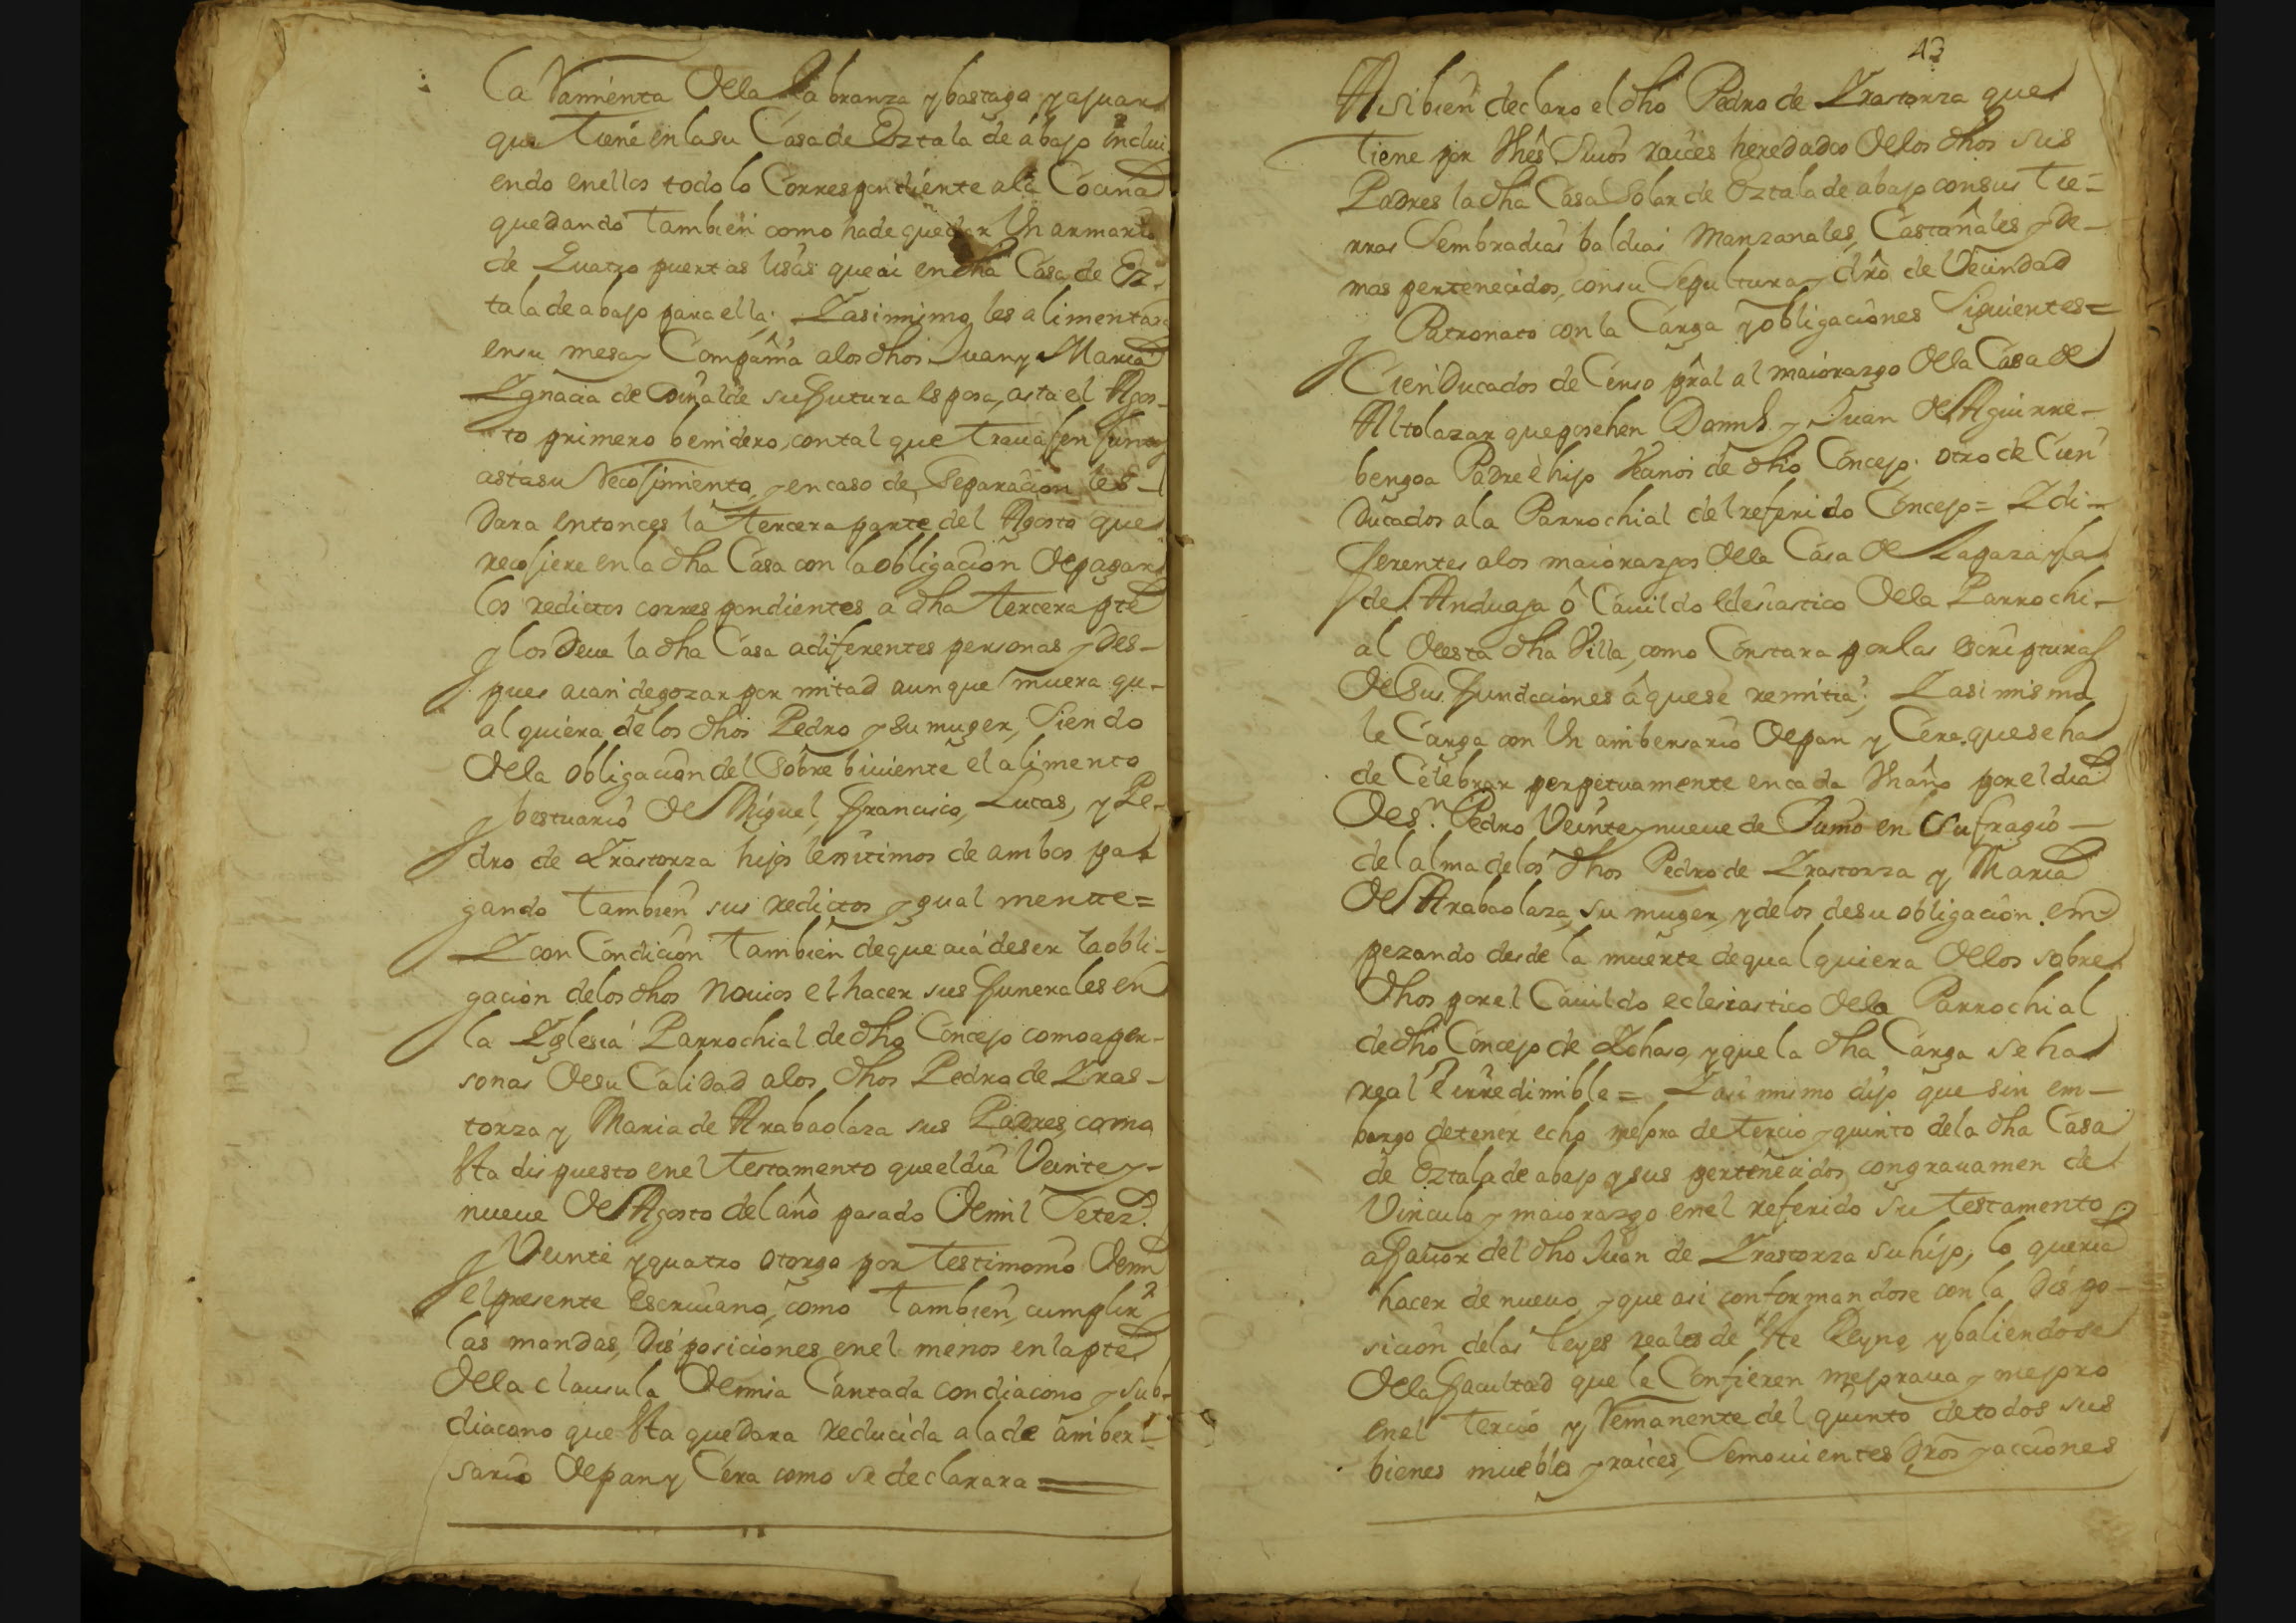 la Ramienta dela labranza y bastaga y ajuar
que tiene en la su Casa de Oztala de abajo inclui
endo en ellos todo lo Correspondiente ala Cocina
quedando tambien como ha de quedar Un armario
de Quatro puertas lisas que ai en dha Casa de Oz-
tala de abajo para ella; Y asimismo les alimentara
en su mesa y Compañia a los dhos Juan y Maria
Ygnacia de su futura esposa, asta el Agos-
to primero benidero, con tal que travajen juntos
asta su Recojimiento, y en caso de Separacion les
Dara entonces la tercera parte del Agosto que
recojiere en la dha Casa con la obligacion de pagar
los redictos correspondientes a dha tercera pte
y los Deve la dha Casa a diferentes personas y Des-
pues aian de gozar por mitad aunque muera qu-
al quiera de los dhos Pedro y su muger, Siendo
dela obligacion del Sobre biviente el alimento
y bestuario de Miguel, Francisco, Lucas, y Pe-
dro de Yrastorza hijos lexitimos de ambos pa-
gando tambien sus redictos ygual mente=
Y con Condicion tambien de que aia de ser la obli-
gacion delos dhos Novios el hacer sus funerales en
la Yglesia Parrochial de dho Concejo como a per-
sonas de su Calidad a los dhos Pedro de Yras-
torza y Maria de Arabaolaza sus Padres, como
sta dispuesto en el testamento que el dia Veinte y
nueve de Agosto del año pasado de mil Setez.
y Veinte y quatro otorgo por testimonio de mi
el presente Escrivano, como tambien, cumplir
las mandas, Disposiciones en el menos en la pte
dela clausula de misa Cantada con diacono y sub-
diacono que sta quedara Reducida a la de aniber-
sario de pan y Cera como se declarara =
43
Asi bien declaro el dho Pedro de Yrastorza que
tiene por Vnes Suios raices heredados de los dhos sus
Padres la dha Casa Solar de Oztala de abajo con sus tie=
rras Sembradias baldias Manzanales, Castañales y De-
mas pertenecidos, con su Sepultura y dro de Vecindad
y Patronato con la Carga y obligaciones Siguientes=
Cien Ducados de Censo pral al maiorazgo de la Casa de
Altolazar que posehen Doms. y Juan de Aguirre-
bengoa Padre e hijo Vzanos de dho Concejo; otro de Cien
Ducados a la Parrochial del referido Concejo= Y di-
ferentes a los maiorazgos de la Casa de Lapaza y la
de Anduaga ô Cavildo Eclesiastico de la Parrochi-
al de esta dha Villa, como Constara por las escripturas
de Sus fundaciones â que se remitia; Y asimismo
le Carga con Un anibersario de pan y Cera que se ha
de Celebrar perpetuamente en cada Vn año por el dia
de Sn. Pedro Veinte y nueve de Junio en Sufragio
del alma de los dhos Pedro de Yrastorza y Maria
de Arabaolaza, su muger, y de los de su obligacion em
pezando desde la muerte de qual quiera dellos sobre
dhos por el Cavildo eclesiastico de la Parrochial
de dho Concejo de y que la dha Carga se ha
real e irredimible= Y asi mismo dijo que sin em-
bargo de tener echo mejora de tercio y quinto de la dha Casa
de Oztala de abajo y sus pertenecidos con gravamen de
Vinculo y maiorazgo en el referido su testamento
a favor del dho Juan de Yrastorza su hijo, lo queria
hacer de nuevo, y que asi conformandose con la Dispo-
sicion de las leyes reales de ste Reyno y baliendose
dela facultad que le Confieren mejorava y mejoro
en el tercio y Remanente del quinto de todos sus
bienes muebles y raices, Semovientes dros y acciones